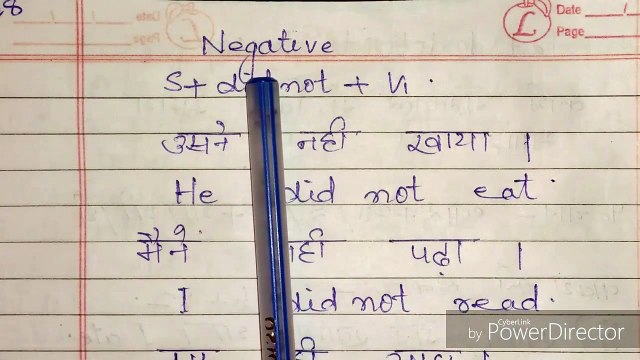 8
Date 1
Page
Negative
S+ did not + V1 .
उसने नही खाया |
He did not eat .
मैने नही पढ़ा |
I did not read .
by CyberLink PowerDirector